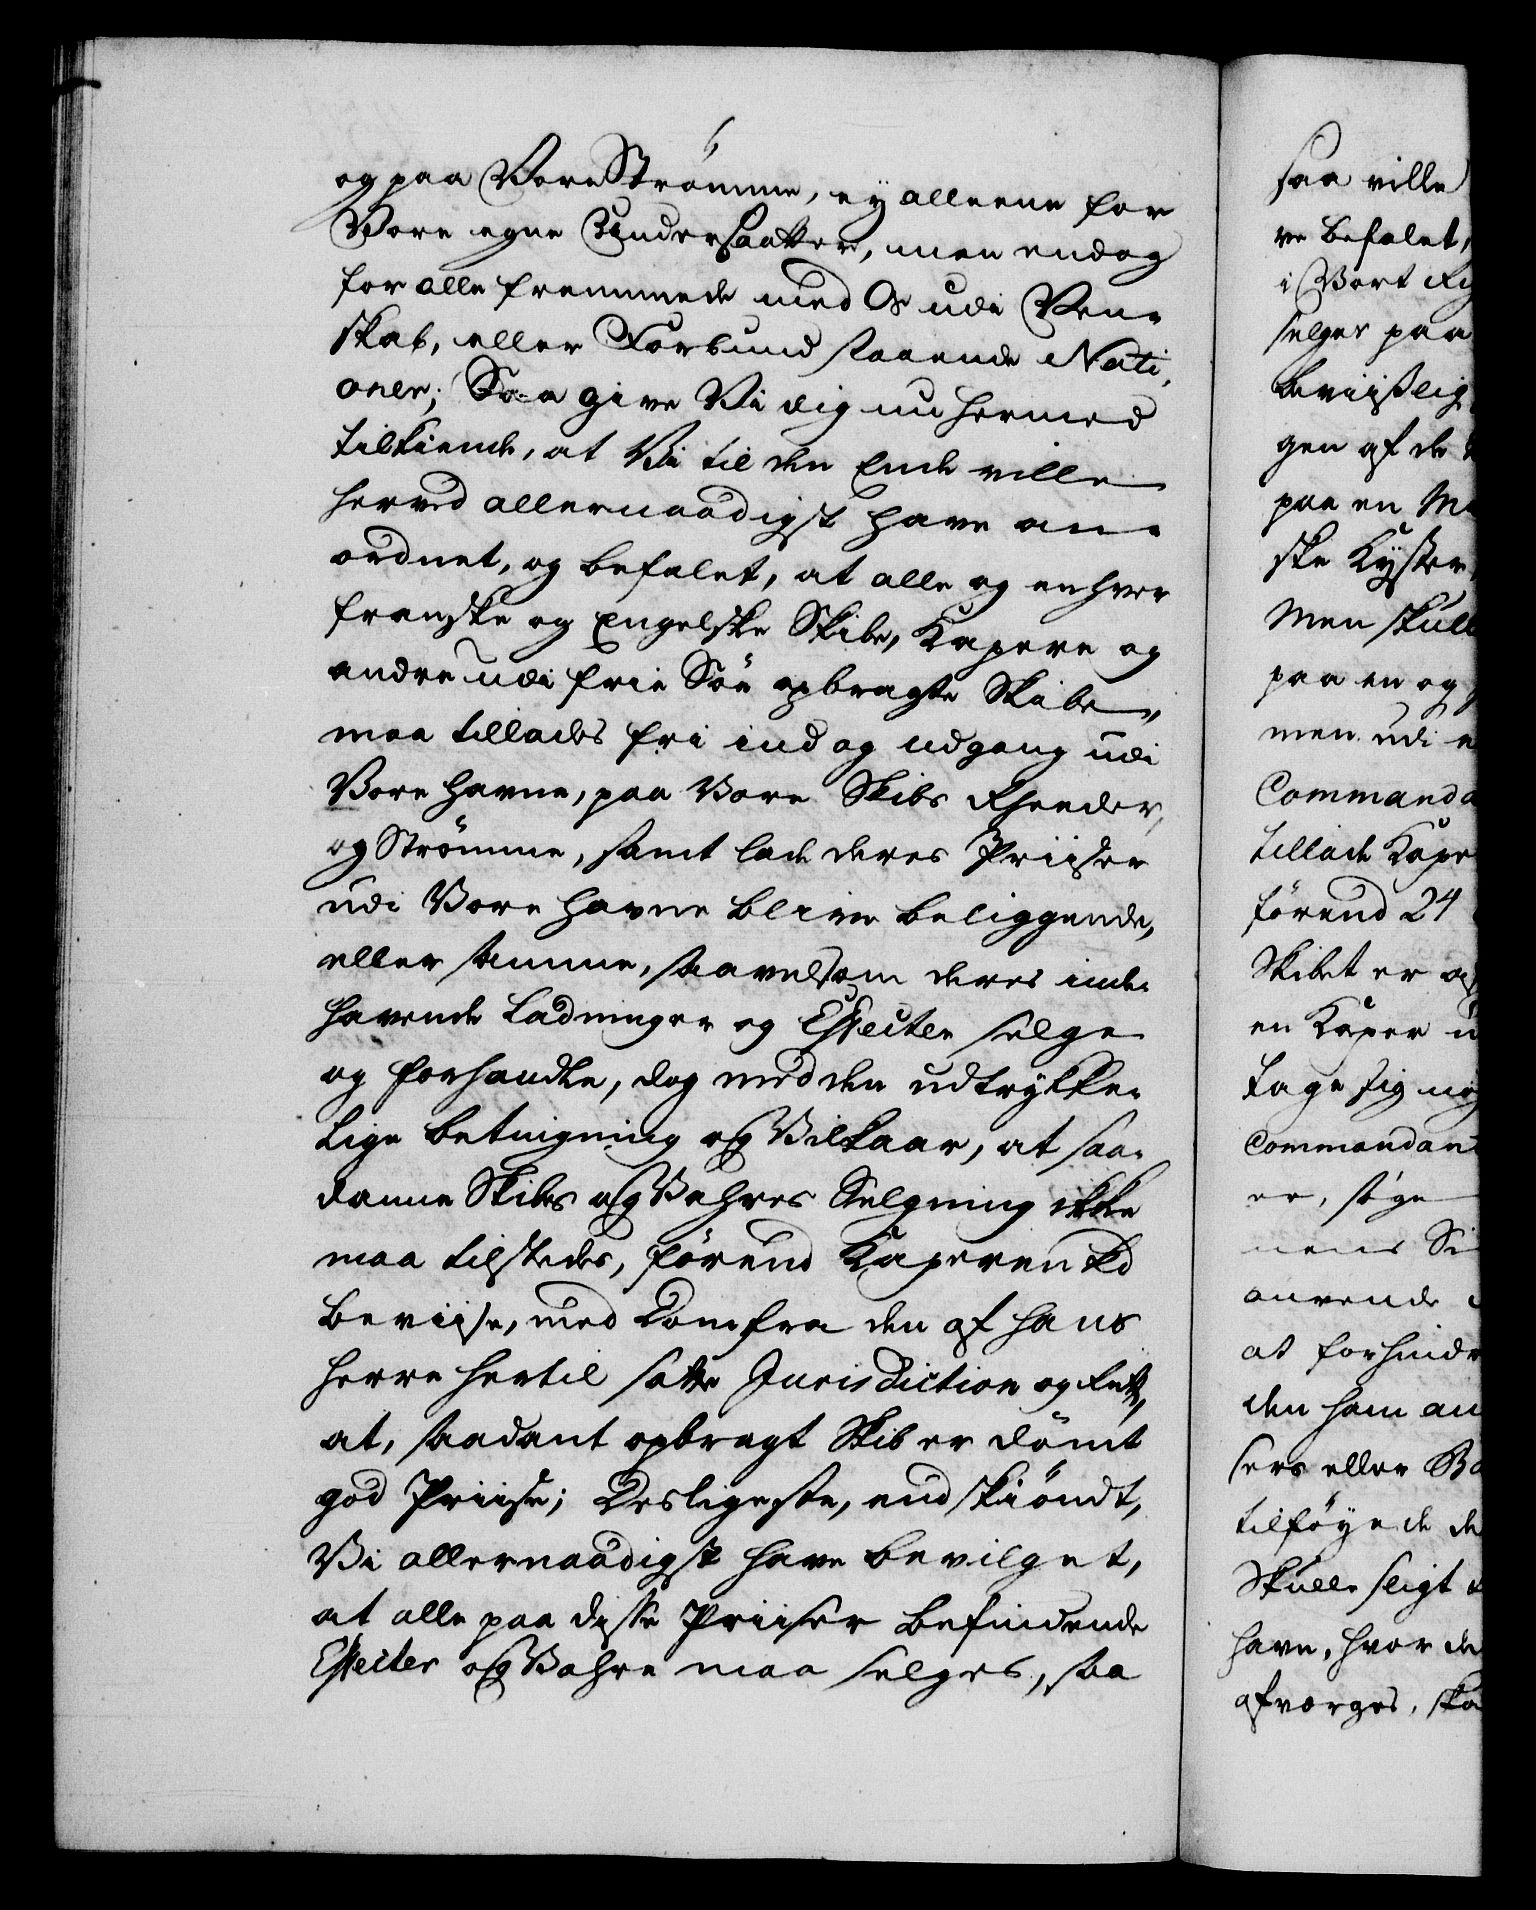 og paa Vore Strømme, ey alleene for
Vore egne Undersaatter, men endog
for alle fremmede med Os udi Ven-
skab, eller Forbund staaende Nati-
oner; Saa give Vi dig nu hermed
tilkiende, at Vi til den Ende ville
herved allernaadigst have an-
ordnet, og befalet, at alle og enhver
franske og Engelske Skibe, Kapere og
andre udi frie Söe opbragte Skibe,
maa tillades fri ind og udgang udi
Vore Havne, paa Vore Skibs Rheeder,
og Strømme, samt lade deres Priiser
udi Vore Havne blive beliggende,
eller samme, saavelsom deres inde-
havende Ladninger og Effecter selge
og forhandle, dog med den udtrykke-
lige betingning og Vilkaar, at saa-
danne Skibes og Vahres Selgning ikke
maa tilstedes, førend Kaperen kd
beviise, med Dom fra den af hans
Herre hertil satte Jurisdiction og Rett,
at, saadant opbragt Skib er dömt
god Priise; Desligeste, endskiöndt,
Vi allernaadigst have bevilget,
at alle paa disse Priiser befindende
Effecter og Vahre maa selges, saa
saa ville
ve befalet,
i Vort
selges paa
beviislig
gen af de
paa en
ske Kyster,
Men skull
paa en og
men udi
Commanda
tillade Kape
förend 24
Skibet er
en Kaper
tage sig
Commandan
er, søge
anvende
at forhindr
den ham an
sers eller
tilföyede de
Skulle sligt
Havn, hvor de
afværges, ska